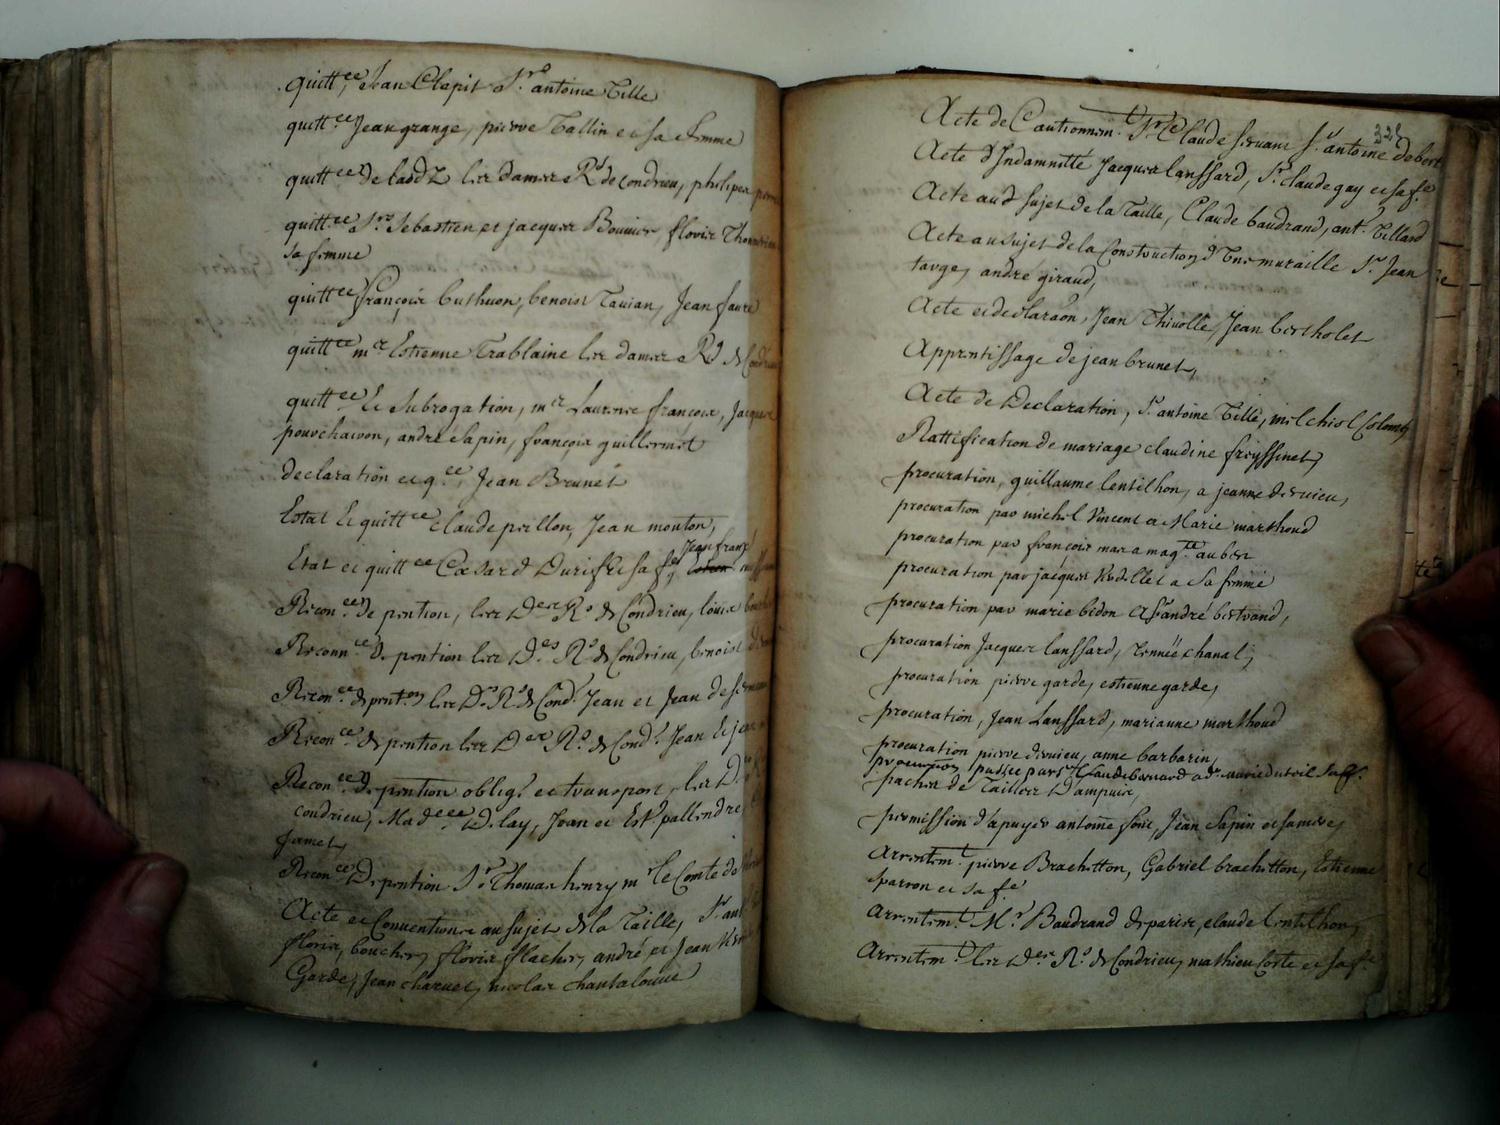 quitt.ce Jean Clapit Sr. antoine Tille
quitt.ce Jean grange, pierre Tallin et sa femme
quitt.ce de les dames Rses de Condrieu, philipes
quitt.ce Srs Sebastien et jacques Bouvier, floris
sa femme
quitt.ce françois buthuon, benoist Tavian, Jean faure
quitt.ce mre Estienne Trablaine les dames Rses de
quitt.ce et Subrogation, mre Laurence françois,
pourchaison, andré sapin, françois guillermet
declaration et q.ce, Jean Brunet
Estat et quitt.ce Claude peillon, Jean mouton,
Etat et quitt.ce Cæsard Durif et sa fe, Jean
Recon.ce de pention, les Des Rses de Condrieu, louis
Reconn.ce de pention les Des Rses de Condrieu, benoist
Recon.ce de pent.on les Des Rses de Cond. Jean et Jean
Recon.ce de pention les Des Rses de Cond. Jean et
Recon.ce De pention oblig. et transport, les Des
condrieu, Delay, Jean et Est. pallendre,
Jamet,
Recon.ce De pention Sr Thomas henry mr le Comte de
Acte et Convention au sujet de la Taille,
floris, boucher, floris flacher, andré et Jean
Garde, Jean charvet, nicolas chantalouve
Acte de Cautionnem.t Sr Claude servant Sr. antoine debert
Acte d'Indamnitté Jacques lanssard, Sr claude gay et sa fe
Acte aud sujet de la Taille, Claude baudrand, ant. Tilland
Acte au sujet de la Construction d'Une muraille Sr. Jean
targe, andré giraud,
Acte et declaraon, Jean Thivolle, Jean bertholet
Apprentissage de jean brunet,
Acte de Declaration, Sr antoine Tille, melchiol Colomb
Rattiffication de mariage claudine freyssinet,
procuration, guillaume lentilhon, a jeanne dervieu,
procuration par michel Vincent a Marie marthoud
procuration par françois mara magte aubert
procuration par jacques a sa femme
procuration par marie bidon a Sr andré bertrand,
procuration Jacques lanssard, rennée chanal,
procuration pierre garde, estienne garde,
procuration, Jean Lanssard, marianne marthoud
procuration pierre dervieu, anne barbarin,
procuration passée par Sr Claude bernard a de marie duteil sa fe.
pache de Tailler Dampuis,
permission d'apuyer antoine font, Jean Sapin et sa mere,
Arrentem.t pierre Brachetton, Gabriel brachetton, Estienne
sparron et sa fe
Arrentem.t Mr Baudrand de paris, claude lentilhon,
Arrentem.t les Des Rses de Condrieu, mathieu Coste et sa fe